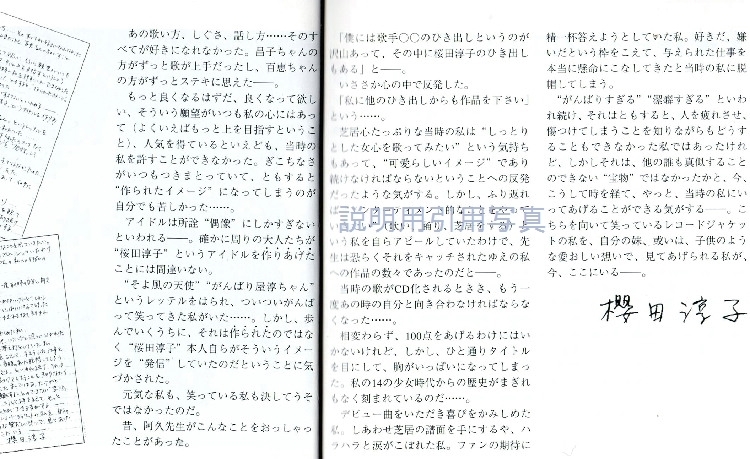 あの歌い方、しぐさ、話し方……そのす
べてが好きになれなかった。昌子ちゃんの
方がずっと歌が上手だったし、百恵ちゃん
の方がずっとステキに思えた――。
もっと良くなるはずだ、良くなって欲し
い、そういう願望がいつも私の心にはあっ
て（よくいえばもっと上を目指すというこ
と）、人気を得ているといえども、当時の
私を許すことができなかった。ぎこちなさ
がいつもつきまとっていて、ともすると
“作られたイメージ”になってしまうのが
自分でも苦しかった……。
アイドルは所詮“偶像”にしかすぎない
といわれる――。確かに周りの大人たちが
“桜田淳子”というアイドルを作りあげた
ことには間違いない。
“そよ風の天使”“がんばり屋淳ちゃん”
というレッテルをはられ、ついついがんば
って笑ってきた私がいた……。しかし、歩
んでいくうちに、それは作られたのではな
く“桜田淳子”本人自らがそういうイメー
ジを“発信”していたのだということに気
づかされた。
元気な私も、笑っている私も決してうそ
ではなかったのだ。
昔、阿久先生がこんなことをおっしゃっ
たことがあった。
「僕には歌手○○のひき出しというのが
沢山あって、その中に桜田淳子のひき出し
もある」と――。
いささか心の中で反発した。
「私に他のひき出しからも作品を下さい」
という……。
芝居心たっぷりな当時の私は“しっとり
とした女心を歌ってみたい”という気持ち
もあって、“可愛らしいイメージ”であり
続けなければならないということへの反発
だったような気がする。しかし、ふり返れ
い私を自らアピールしていたわけで、先
生は恐らくそれをキャッチされたゆえの私
への作品の数々であったのだと――。
当時の歌がCD化されるときき、もう一
度あの時の自分と向き合わなければならな
くなった……。
相変わらず、100点をあげるわけにはい
かないけれど、しかし、ひと通りタイトル
を目にして、胸がいっぱいになってしまっ
た。私の14の少女時代からの歴史がまぎれ
もなく刻まれているのだ……。
デビュー曲をいただき喜びをかみしめた
私。しあわせ芝居の譜面を手にするや、ハ
ラハラと涙がこぼれた私。ファンの期待に
精一杯答えようとしていた私。好きだ、嫌
いだという枠をこえて、与えられた仕事を
本当に懸命にこなしてきたと当時の私に脱
帽してしまう。
“がんばりすぎる”“潔癖すぎる”といわ
れ続け、それはともすると、人を疲れさせ、
傷つけてしまうことを知りながらもどうす
ることもできなかった私ではあったけれ
ど、しかしそれは、他の誰も真似すること
のできない“宝物”ではなかったかと、今、
こうして時を経て、やっと、当時の私にい
ってあげることができる気がする――。こ
ちらを向いて笑っているレコードジャケッ
トの私を、自分の妹、或いは、子供のよう
な愛おしい想いで、見てあげられる私が、
今、ここにいる――。
櫻田淳子
説明用引用写真
櫻田淳子